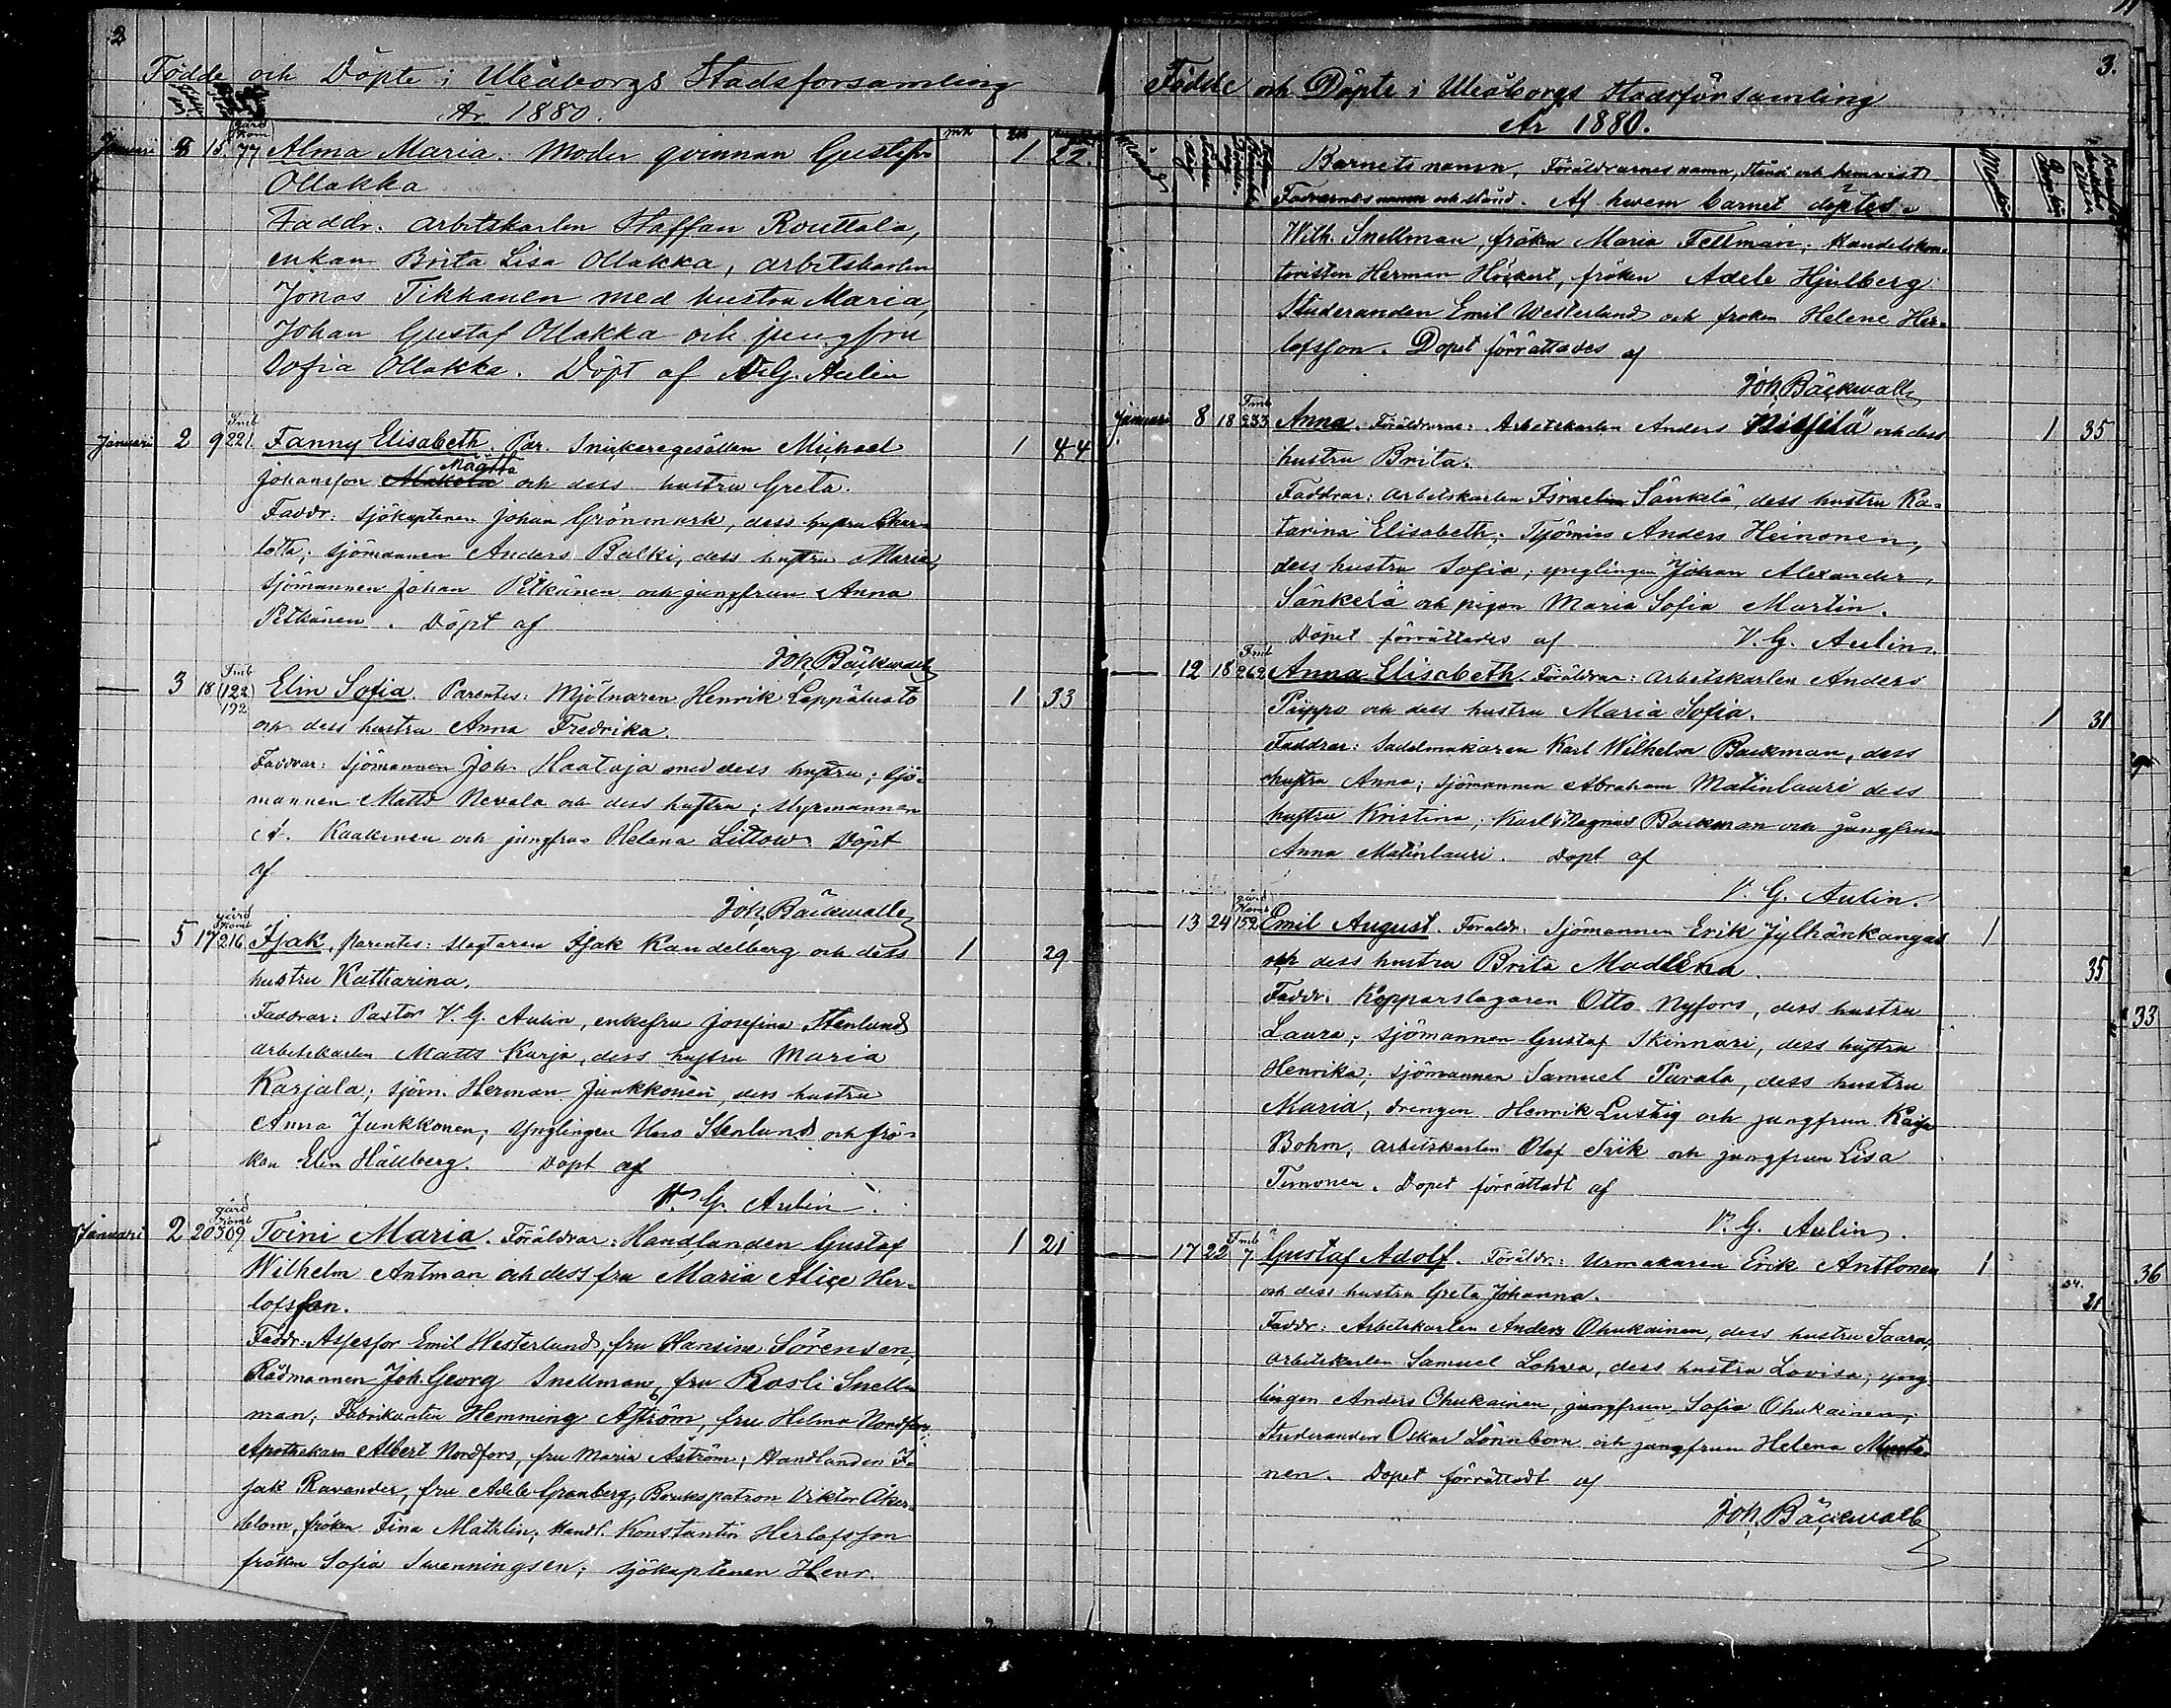 2
Födde och Döpte i Uleåborgs Stadsforsamling
År 1880.
mk
gård Kom
Januari 8 15 77 Alma Maria. Moder qvinnan Gustafva 1 22
Ollakka
Faddr. arbetskarlen Staffan Routtala,
enkan Brita Lisa Ollakka, arbetskarlen
Jonas Tikkanen med hustru Maria,
Johan Gustaf Ollakka och jungfru
Sofia Ollakka. Döpt af V. G. Aulin
Imb
Januari 2 9 221. Fanny Elisabeth. Par. Snickaregesällen Michael 1 44
Määttä
Johansson Makola och dess hustru Greta.
Faddr: sjökaptenen Johan Grönmark, dess hustru Char-
lotta; sjömannen Anders Balki, dess hustru Maria,
sjömannen Johan Pitkänen och jungfrun Anna
Pitkänen. Döpt af
Joh. Bäckwall
Imb
— 3 18 (122) Elin Sofia. Parentes: Mjölnaren Henrik Leppäluoto 1 33
192
och dess hustru Anna Fredrika.
Faddrar: sjömannen Joh. Haataja med dess hustru; sjö-
mannen Matts Nevala och dess hustru; styrmannen
A. Kaakinen och jungfru Helena Littow. Döpt
af
Joh. Bäckwall
gård Komt
— 5 19 216 Isak, parentes: slagtaren Isak Kandelberg och dess 1 29
hustru Katharina.
Faddrar: Pastor V. G. Aulin, enkefru Josefina Stenlund
arbetskarlen Matts Karja, dess hustru Maria
Karjala; sjöm. Herman Junkkonen, dess hustru
Anna Junkkonen; ynglingen Uno Stenlund och frö-
ken Elin Hällberg. Döpt af
V. G. Aulin.
gård Komt
Januari 2 20 309 Toini Maria. Föräldrar: Handlanden Gustaf 1 21
Wilhelm Antman och dess fru Maria Alice Her-
lofsson.
Faddr: Assessor Emil Westerlund, fru Hansine Sörensen,
Rådmannen Joh. Georg Snellman, fru Rosli Snell-
man; Fabrikanten Hemming Aström, fru Hilma Nordfors;
Apothekarn Albert Nordfors, fru Maria Aström; Handlanden I-
sak Ravander, fru Adele Granberg, Brukspatron Viktor Åker-
blom, fröken Fina Mathlin; Handl. Konstantin Herlofsson
fröken Sofia Swenningsen; sjökaptenen Henr.
3.
Födde och Döpte i Uleåborgs Stadsförsamling
År 1880.
Barnets namn, Föräldrarnes namn, stånd och hemvist
Faddrarnes namn och stånd. Af hwem barnet döptes.
Wilh. Snellman, fröken Maria Fellman; Handelskon-
toristen Herman Höckert, fröken Adele Hjulberg
Studeranden Emil Westerlund och fröken Helene Her-
lofsson. Dopet förrättades af
Joh. Bäckwall
Imb
Januari 8 18 233 Anna. Föräldrar: Arbetskarlen Anders och dess 1 35
hustru Brita.
Faddrar: arbetskarlen Israel Sänkelä, dess hustru Ka-
tarina Elisabeth; Työmies Anders Heinonen,
dess hustru Sofia; ynglingen Johan Alexander
Sänkelä och pigan Maria Sofia Martin.
Döpet förrättades af V. G. Aulin
Imb
— 12 18 262 Anna Elisabeth. Föräldrar: arbetskarlen Anders
Piippo och dess hustru Maria Sofia. 1 31
Faddrar: Sadelmakaren Karl Wilhelm Backman, dess
hustru Anna; sjömannen Abraham Matinlauri dess
hustru Kristina; Karl Magnus Backman och jungfrun
Anna Matinlauri. Döpt af
V. G. Aulin.
gård Komt
— 13 24 152 Emil August. Föräldr. Sjömannen Erik Jylhänkangas 1
och dess hustru Brita Madlena. 35
Faddr. Kopparslagaren Otto Nyfors, dess hustru
Laura; sjömannen Gustaf Skinnari, dess hustru
Henrika; sjömannen Samuel Pavala, dess hustru
Maria, drengen Henrik Lustig och jungfrun Kajsa
Bohm, arbetskarlen Olof Siik och jungfrun Lisa
Timonen. Dopet förrättadt af
V. G. Aulin.
Imb
— 17 22 7 Gustaf Adolf. Föräldr.: Urmakaren Erik Anttonen 1
och dess hustru Greta Johanna. 34. 21
Faddr: Arbetskarlen Anders Ohukainen, dess hustru Saara;
arbetskarlen Samuel Lohvra, dess hustru Lovisa; yng-
lingen Anders Ohukainen, jungfrun Sofia Ohukainen,
Studeranden Oskar Lönnbom och jungfrun Helena Musto-
nen. Dopet förrättadt af
Joh. Bäckwall
33
36